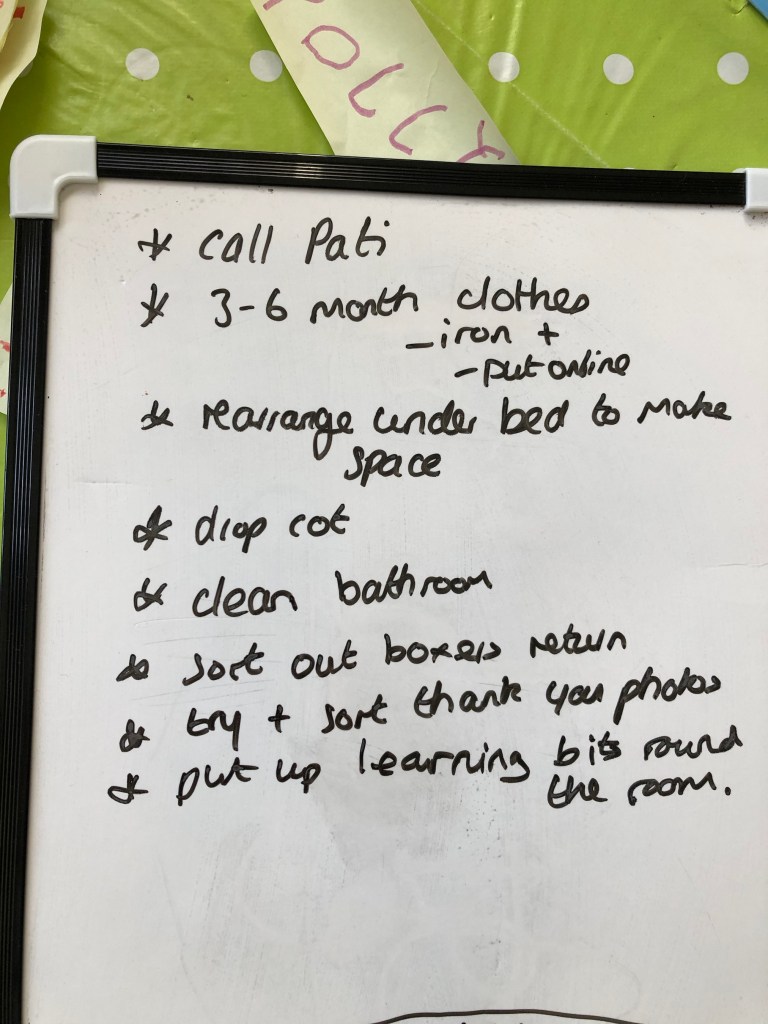 POLLY
* call Pati
* 3-6 month clothes
- iron +
- put online
* rearrange under bed to make
space
* drop cot
* clean bathroom
* sort out boxers return
* try + sort thank you photos
* put up learning bits round
the room.